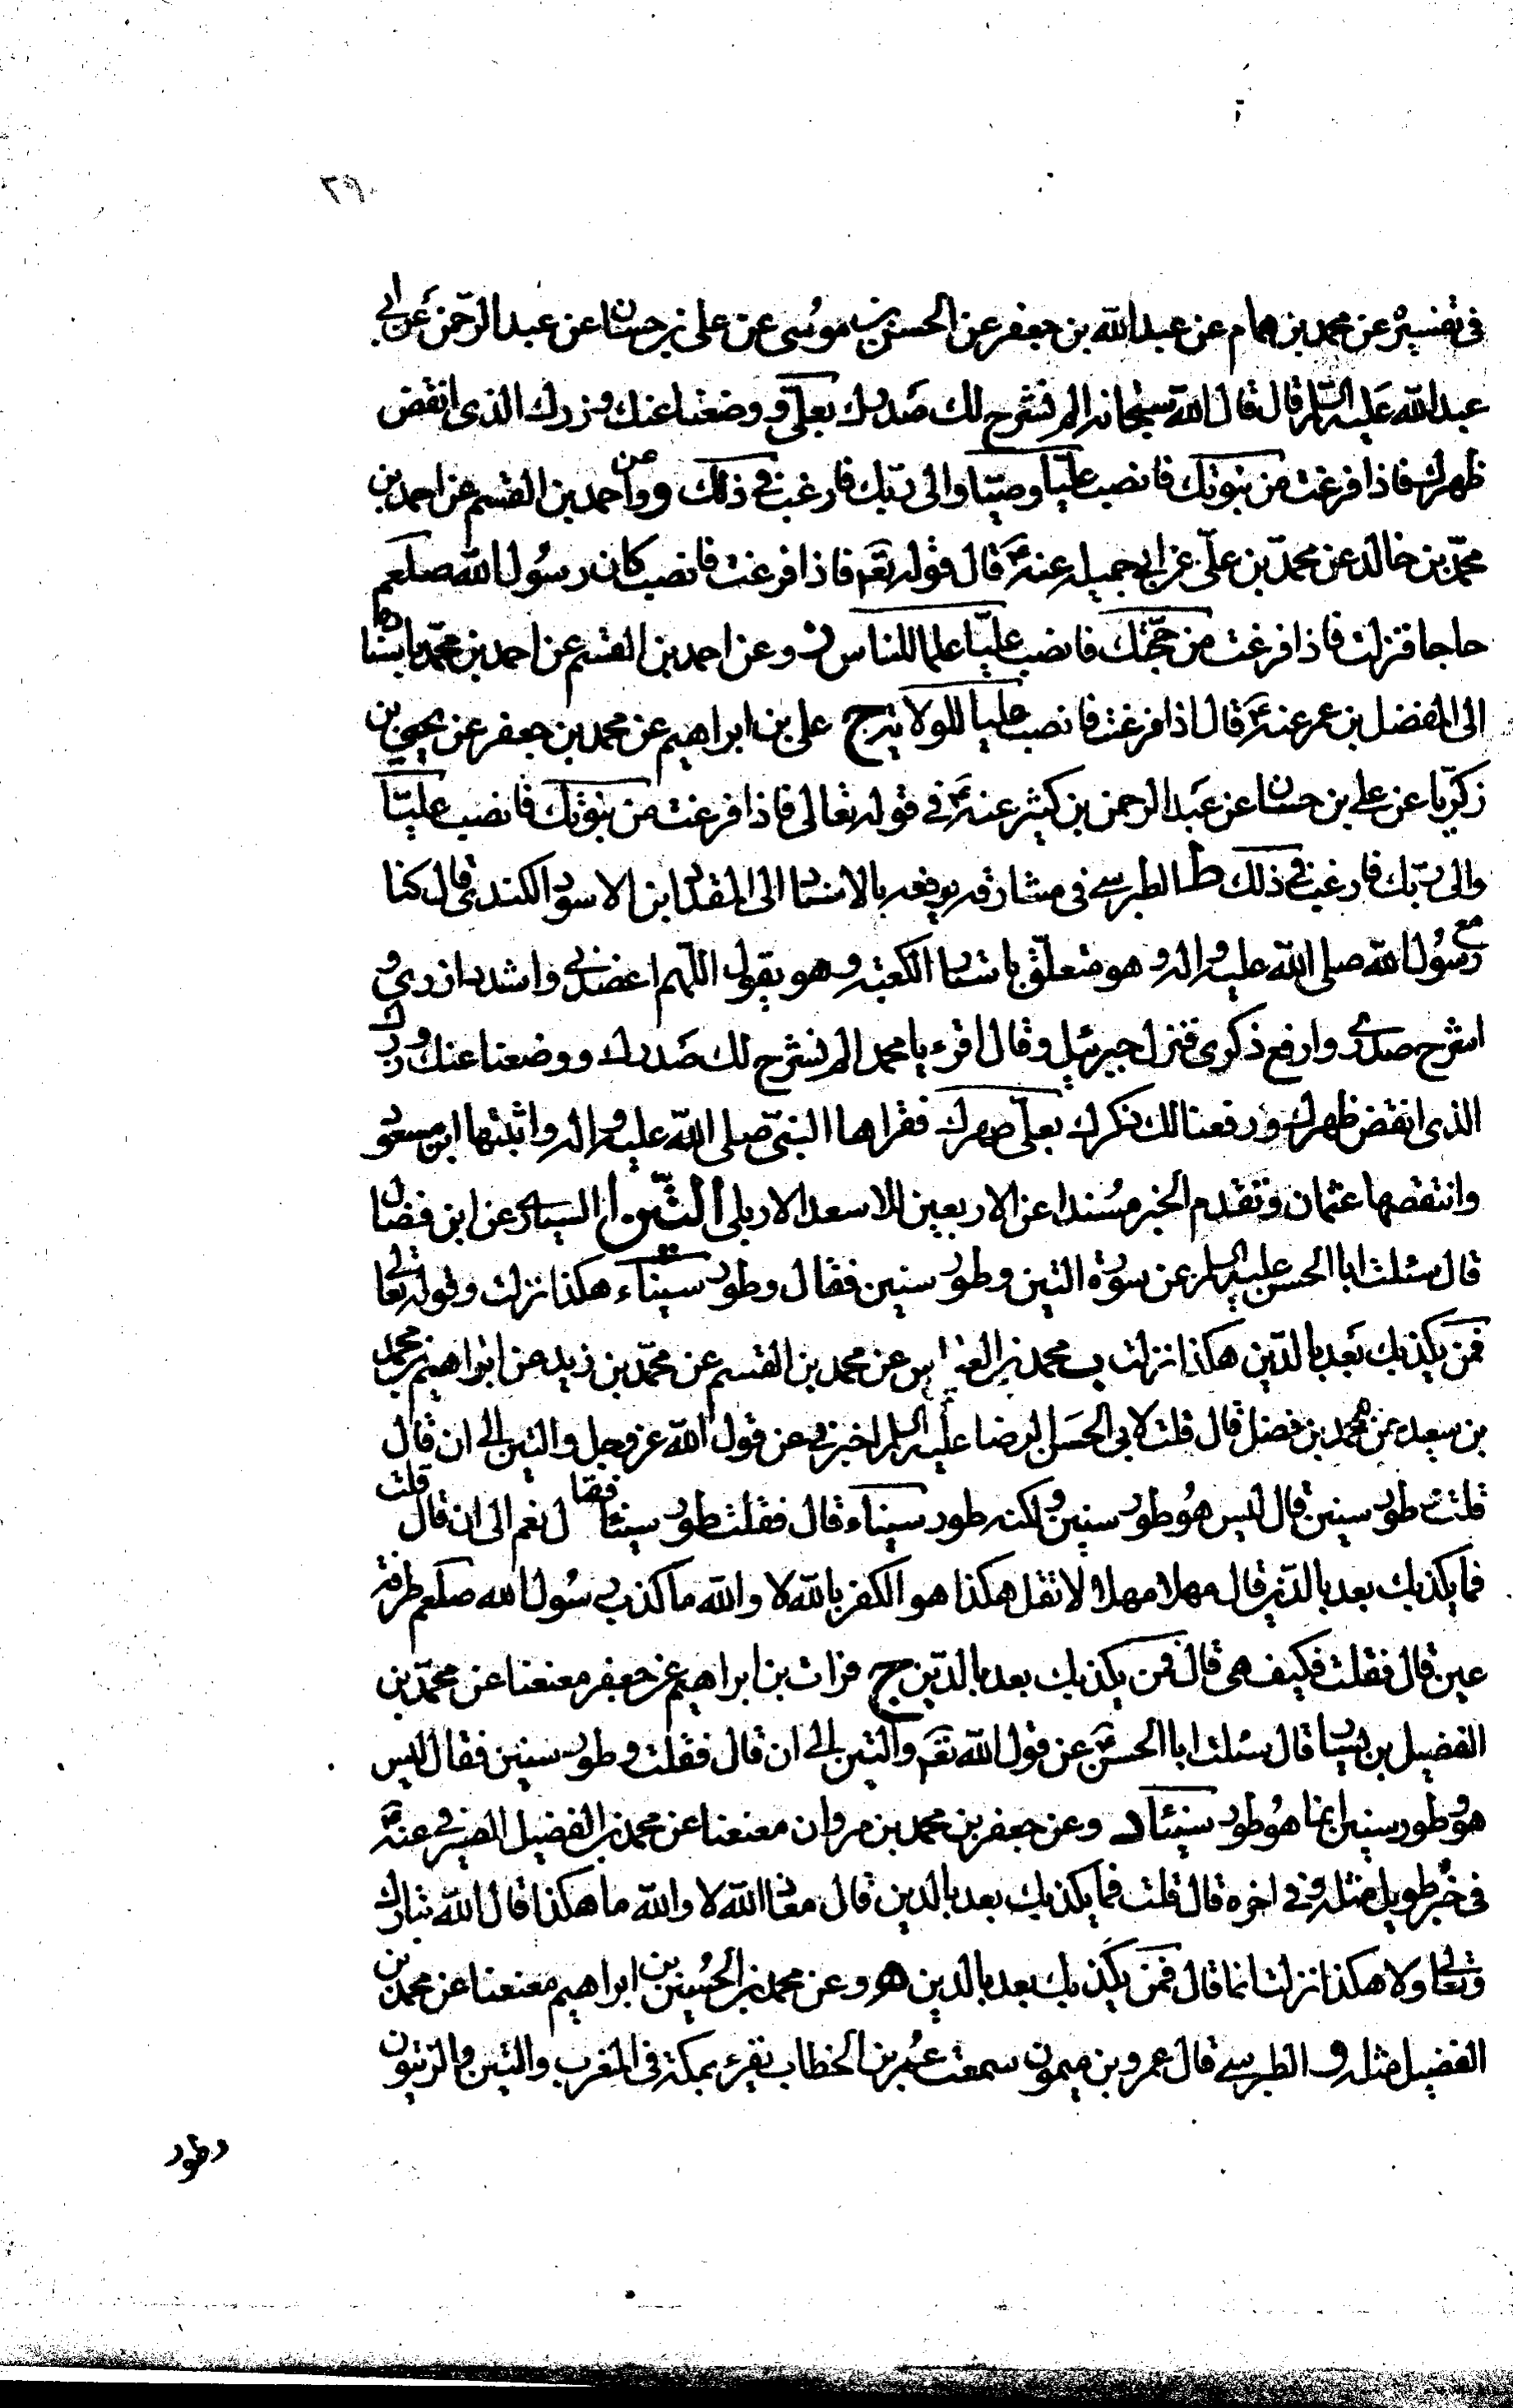 في تفسيره عن محمد بن همام عن عبد الله بن جعفر عن الحسن بن موسى عن على بن حسان عن عبد الرحمن عن ابي
عبد الله عليه السلم قال قال الله سبحانه الم نشرح لك صدرك بعلى و وضعنا عنك وزرك الذى انقض
ظهرك فاذا فرغت من نبوتك فانصب عليّا وصيّا والى ربّك فارغب في ذلك و وعن احمد بن القسم عن احمد بن
محمّد بن خالد عن محمّد بن علىّ عن ابي جميله عنه ع قال قوله تعم فاذا فرغت فانصب كان رسول الله صلعم
حاجا فنزلت فاذا فرغت من حجّتك فانصب عليّا علما للناس وعن احمد بن القسم عن احمد بن محمّد باسناده
الى المفضل بن عمر عنه ع قال اذا فرغت فانصب عليا للولاية ج على بن ابراهيم عن محمد بن جعفر عن يحيى بن
زكريّا عن علي بن حسان عن عبد الرحمن بن كثير عنه ع في قوله تعالى فاذا فرغت من نبوّتك فانصب عليّا
والى ربّك فارغب في ذلك ط الطبرسي فى مشارقه يرفعه بالاسناد الى المقداد ابن الاسود الكندى قال كنا
مع رسول الله صلى الله عليه واله وهو متعلّق باستار الكعبة وهو يقول اللّهم اعضدنى واشدد ازرى و
اشرح صدرى وارفع ذكرى فنزل جبرئيل وقال اقرء يا محمد الم نشرح لك صدرك ووضعنا عنك وزرك
الذى انقض ظهرك ورفعنا لك ذكرك بعلىّ صهرك فقراها النبىّ صلى الله عليه واله واثبتها ابن مسعود
وانتقصها عثمان وتقدم الخبر مسندا عن الاربعين للاسعد الاربلى التّين السيارى عن ابن فضال
قال سئلت ابا الحسن عليه السلم عن سورة التين وطور سنين فقال وطور سيناء هكذا نزلت وقوله تعالى
فمن يكذبك بعد بالدّين هكذا نزلت ب محمد بن العباس عن محمد بن القسم عن محمّد بن زيد عن ابراهيم بن محمد
بن سعيد عن محمد بن فضل قال قلت لابى الحسن الرضا عليه السلم اخبرنى عن قول الله عز وجل والتين الى ان قال
قلت وطور سنين قال ليس هو طور سنين ولكنه طور سيناء قال فقلت طور سيناء فقال نعم الى ان قال قلت
فما يكذبك بعد بالدّين قال مهلا مهلا لا تقل هكذا هو الكفر بالله لا والله ما كذب رسول الله صلعم طرفة
عين قال فقلت فكيف هى قال فمن يكذبك بعد بالدّين ج فرات بن ابراهيم عن جعفر معنعنا عن محمّد بن
الفضيل بن يسار قال سئلت ابا الحسن ع عن قول الله تعم والتين الى ان قال فقلت وطور سنين فقال ليس
هو طور سنين انما هو طور سيناء د وعن جعفر بن محمد بن مروان معنعنا عن محمد بن الفضيل الصيرفى عنه ع
فى خبر طويل مثله وفى اخره قال قلت فما يكذبك بعد بالدين قال معاذ الله لا والله ما هكذا قال الله تبارك
وتعالى ولا هكذا نزلت انما قال فمن يكذبك بعد بالدين ه وعن محمد بن الحسين بن ابراهيم معنعنا عن محمد بن
الفضيل مثله و الطبرسي قال عمرو بن ميمون سمعت عمر بن الخطاب يقرء بمكة فى المغرب والتين والزيتون
وطور